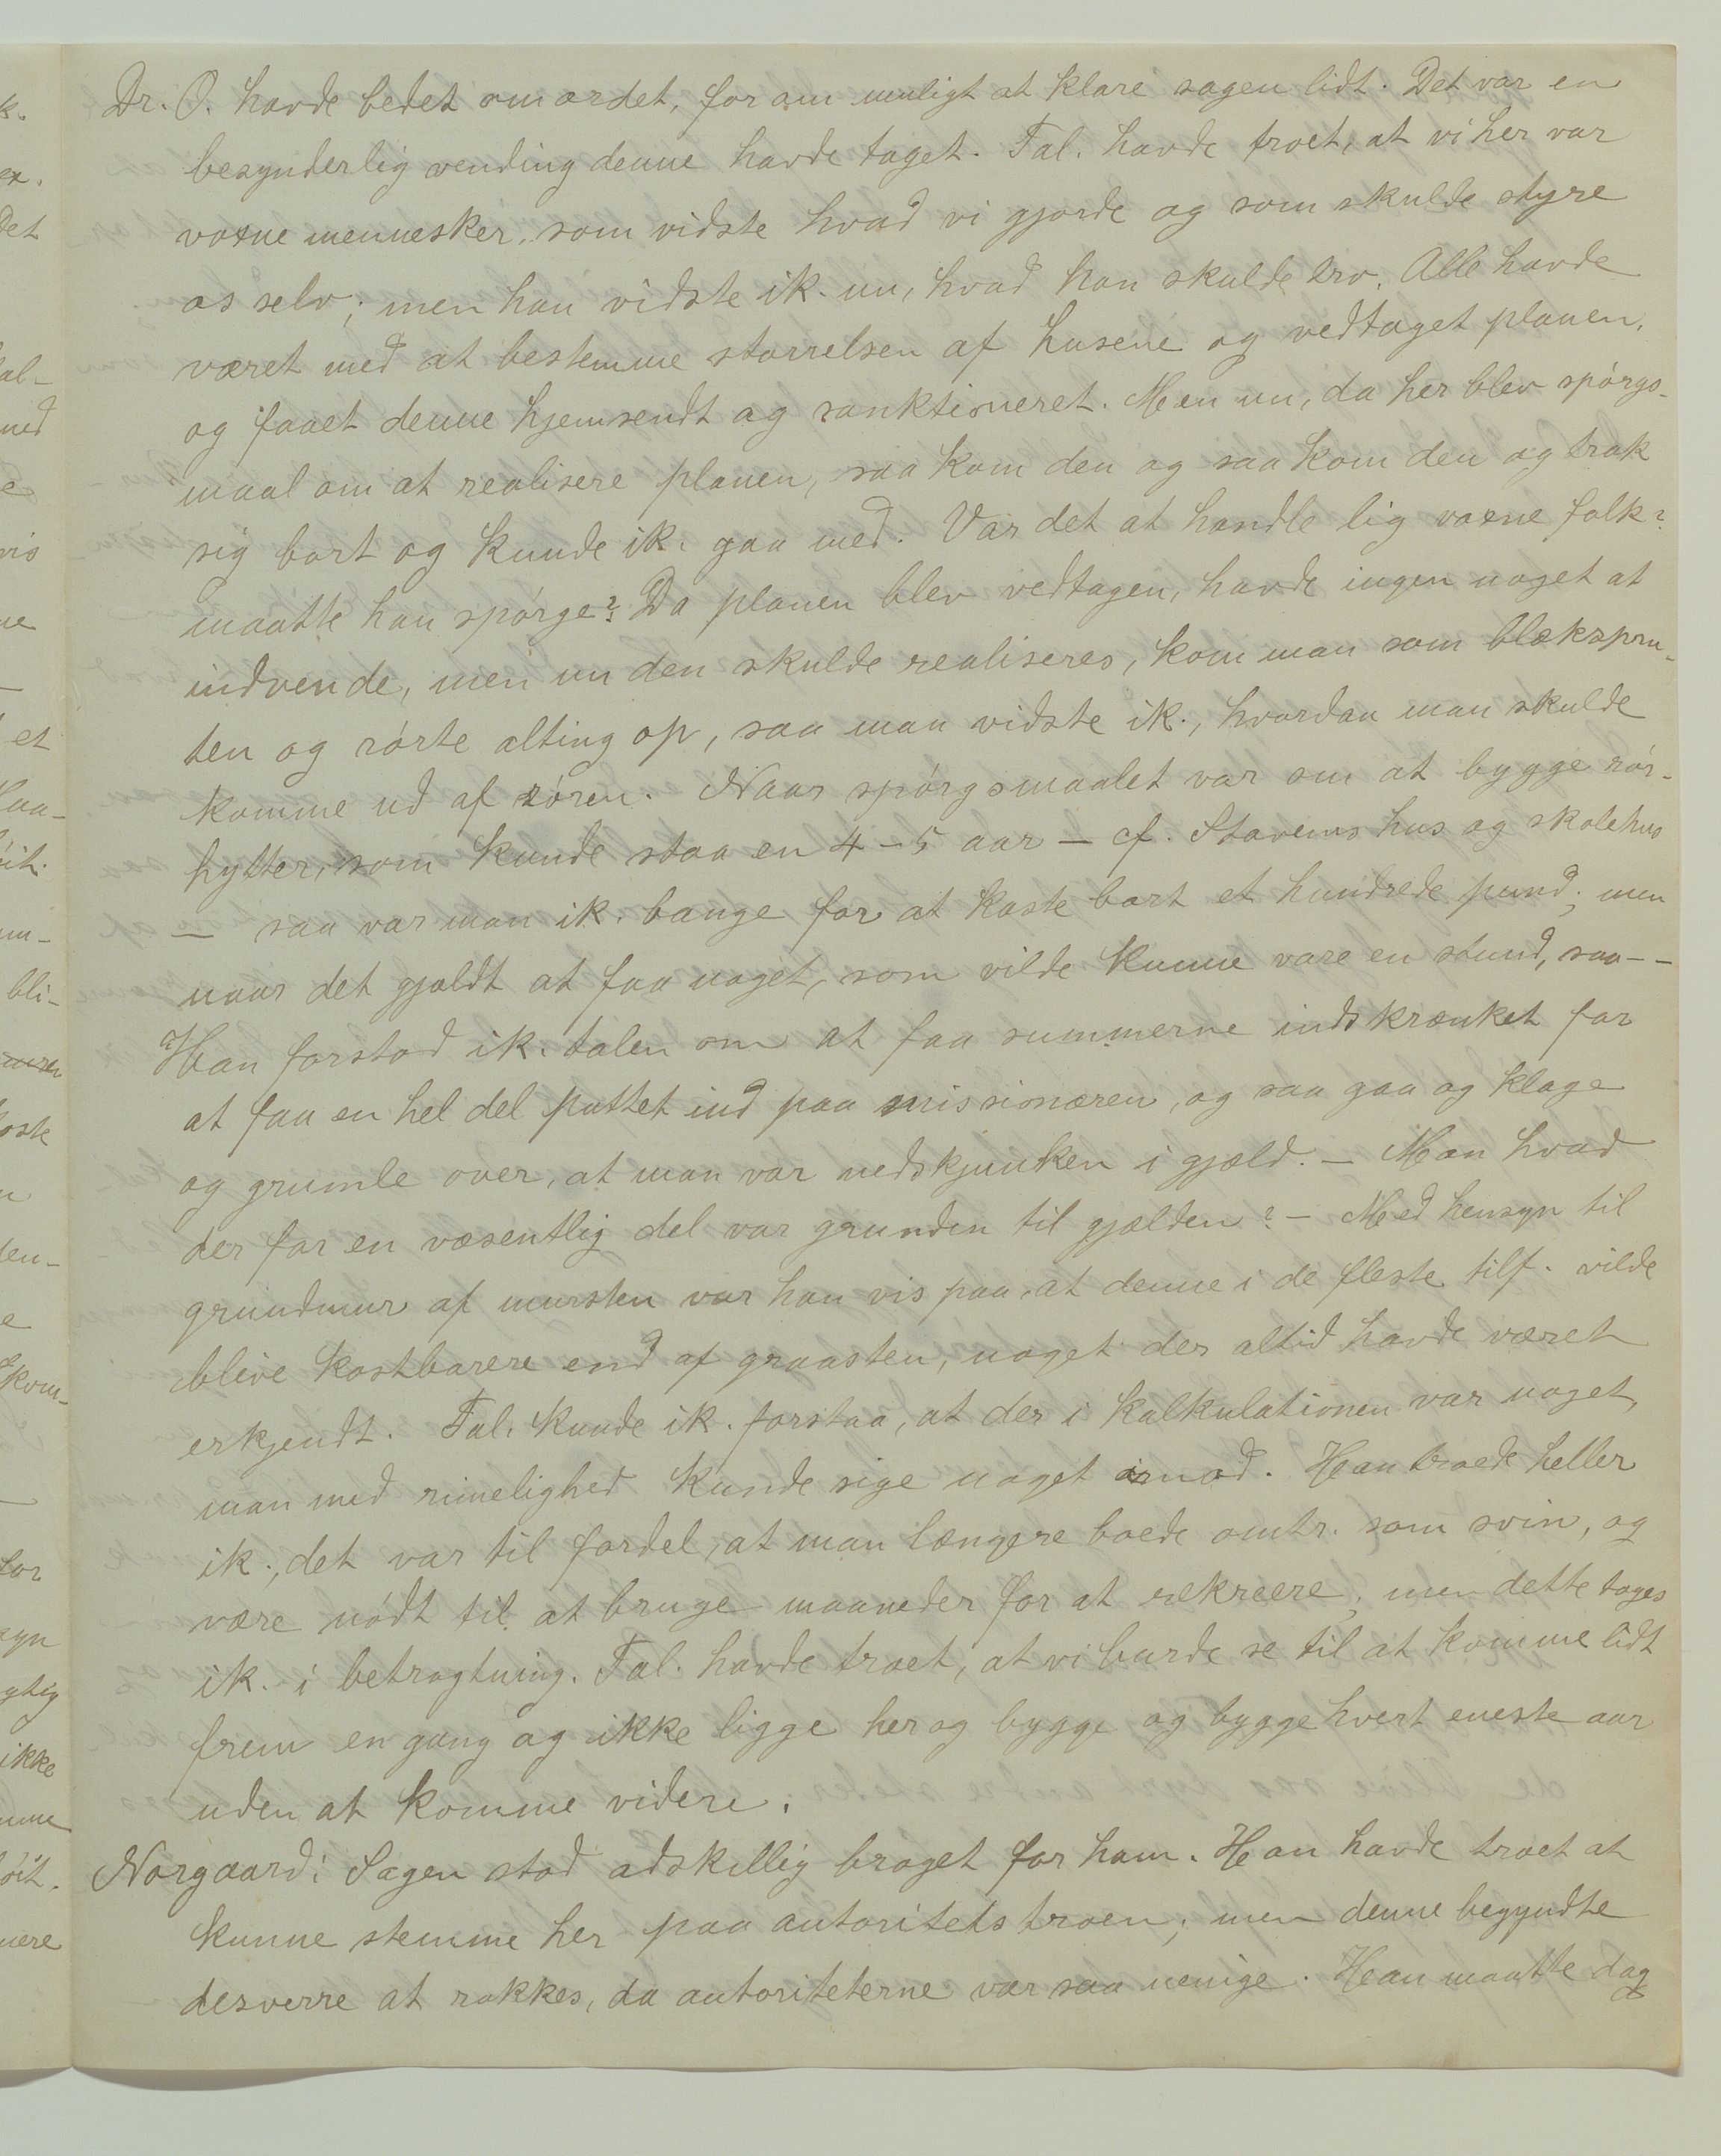 Dr. O. havde bedet om ordet, for om muligt at klare sagen lidt. Det var en
besynderlig vending denne havde taget. Tal. havde troet, at vi her var
voxne mennesker, som vidste hvad vi gjorde og som skulde styre
os selv; men han vidste ik. nu, hvad han skulde tro. Alle havde
været med at bestemme størrelsen af husene og vedtaget planen,
og faaet denne hjemsendt og sanktioneret. Men nu, da her blev spörgs-
maal om at realisere planen, saa kom den og saa kom den og trak
sig bort og kunde ik. gaa med. Var det at handle lig voxne folk?
maatte han spörge? Da planen blev vedtagen, havde ingen noget at
indvende, men nu den skulde realiseres, kom man som blækspru-
ten og rörte alting op, saa man vidste ik., hvordan man skulde
komme ud af rören. Naar spörgsmaalet var om at bygge rör-
hytter, som kunde staa en 4-5 aar — cf. Stavems hus og skolehus
— saa var man ik. bange for at kaste bort et hundrede pund; men
naar det gjaldt at faa noget, som vilde kunne vare en stund, saa--
Han forstod ik. talen om at faa summerne indskrænket for
at faa en hel del puttet ind paa missionæren, og saa gaa og klage
og grumle over, at man var nedskjunken i gjæld. — Men hvad
der for en væsentlig del var grunden til gjælden? — Med hensyn til
grundmur af mursten var han vis paa, at denne i de fleste tilf. vilde
blive kostbarere end af graasten, noget der altid havde været
erkjendt. Tal. kunde ik. forstaa, at der i kalkulationen var noget,
man med rimelighed kunde sige noget imod. Han troede heller
ik., det var til fordel, at man længere boede omtr. som svin, og
være nödt til at bruge maaneder for at rekreere; men dette toges
ik. i betragtning. Tal. havde troet, at vi burde se til at komme lidt
frem en gang og ikke ligge her og bygge og bygge hvert eneste aar
uden at komme videre.
Norgaard: Sagen stod adskillig broget for ham. Han havde troet at
kunne stemme her paa autoritetstroen; men denne begyndte
desverre at rokkes, da autoriteterne var saa uenige. Han maatte dog